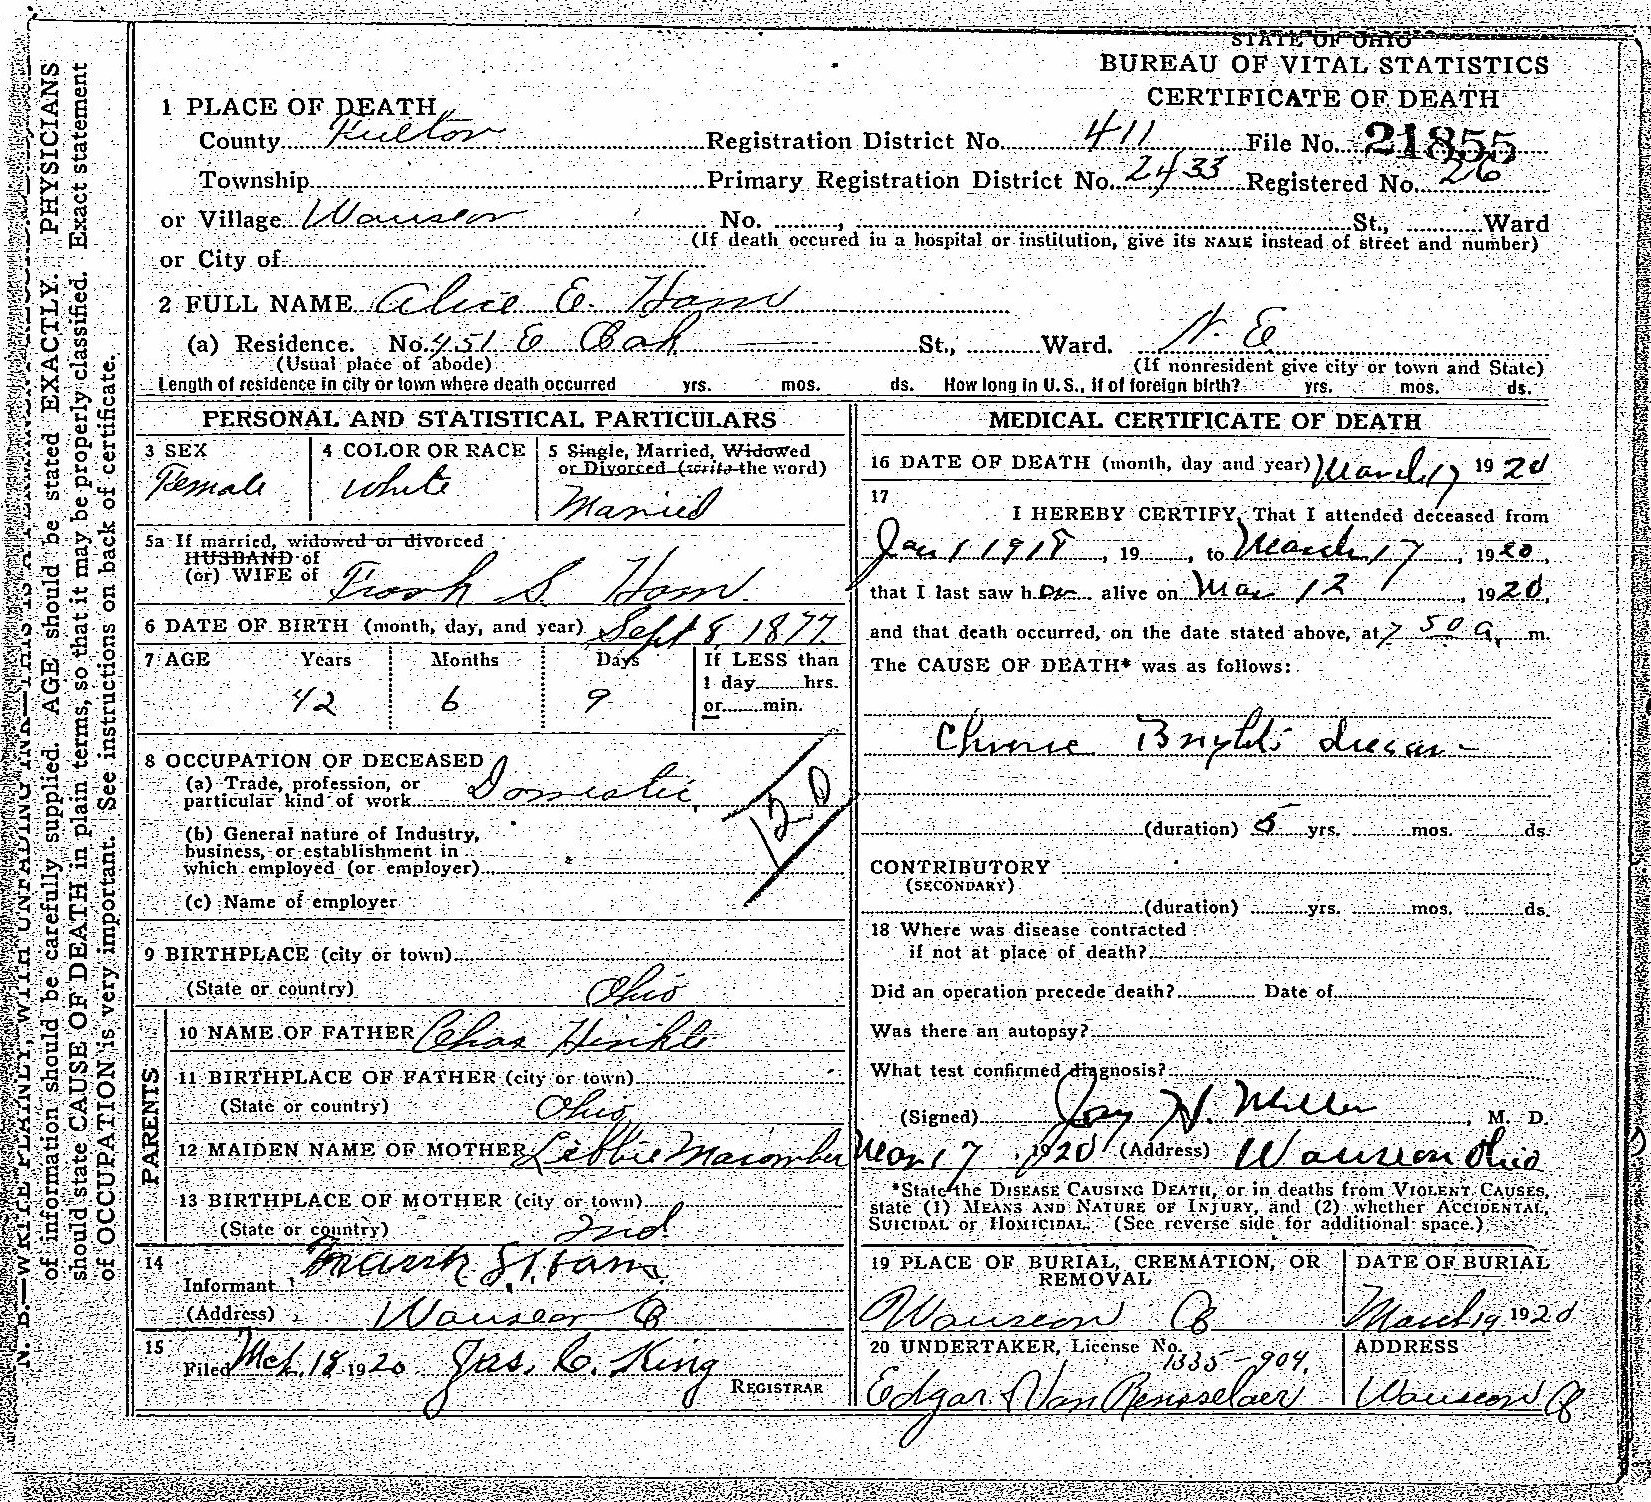 STATE OF OHIO
BUREAU OF VITAL STATISTICS
CERTIFICATE OF DEATH
1 PLACE OF DEATH
County Fulton Registration District No. 411 File No. 21855
Township Primary Registration District No. 2433 Registered No. 26
or Village Wauseon No. , St., Ward
(If death occured in a hospital or institution, give its NAME instead of street and number)
or City of
2 FULL NAME Alice E. Ham
(a) Residence. No. 451 E Oak St., Ward. N. E
(Usual place of abode) (If nonresident give city or town and State)
Length of residence in city or town where death occurred yrs. mos. ds. How long in U. S., if of foreign birth? yrs. mos. ds.
PERSONAL AND STATISTICAL PARTICULARS
3 SEX
Female
4 COLOR OR RACE
White
5 Single, Married, Widowed
or Divorced (write the word)
Married
5a If married, widowed or divorced
HUSBAND of
(or) WIFE of Frank S. Ham.
6 DATE OF BIRTH (month, day, and year) Sept 8, 1877
7 AGE Years Months Days If LESS than
1 day hrs.
42 6 9 or min.
8 OCCUPATION OF DECEASED
(a) Trade, profession, or
particular kind of work Domestic
120
(b) General nature of Industry,
business, or establishment in
which employed (or employer)
(c) Name of employer
9 BIRTHPLACE (city or town)
(State or country) Ohio
PARENTS
10 NAME OF FATHER Chas Hinkle
11 BIRTHPLACE OF FATHER (city or town)
(State or country) Ohio
12 MAIDEN NAME OF MOTHER Libbie Macomber
13 BIRTHPLACE OF MOTHER (city or town)
(State or country) Ind
14
Informant Frank S. Ham
(Address) Wauseon O
15
Filed Mch. 18 1920 Jas. C. King
REGISTRAR
MEDICAL CERTIFICATE OF DEATH
16 DATE OF DEATH (month, day and year) March 17 1920
17
I HEREBY CERTIFY, That I attended deceased from
Jan 1 1918, 19 , to March 17, 1920,
that I last saw her alive on Mar 12, 1920,
and that death occurred, on the date stated above, at 7 50 a. m.
The CAUSE OF DEATH* was as follows:
Chronic Bright's disease
(duration) 5 yrs. mos. ds.
CONTRIBUTORY
(SECONDARY)
(duration) yrs. mos. ds.
18 Where was disease contracted
if not at place of death?
Did an operation precede death? Date of
Was there an autopsy?
What test confirmed diagnosis?
(Signed) Jay H. Miller, M. D.
Mar 17, 1920 (Address) Wauseon Ohio
*State the DISEASE CAUSING DEATH, or in deaths from VIOLENT CAUSES,
state (1) MEANS AND NATURE OF INJURY, and (2) whether ACCIDENTAL,
SUICIDAL or HOMICIDAL. (See reverse side for additional space.)
19 PLACE OF BURIAL, CREMATION, OR
REMOVAL
Wauseon O
DATE OF BURIAL
March 19 1920
20 UNDERTAKER, License No.
1335-904.
Edgar Van Rensselaer
ADDRESS
Wauseon O
N. B.—WRITE PLAINLY, WITH UNFADING INK—THIS IS A PERMANENT
of information should be carefully supplied. AGE should be stated EXACTLY. PHYSICIANS
should state CAUSE OF DEATH in plain terms, so that it may be properly classified. Exact statement
of OCCUPATION is very important. See instructions on back of certificate.